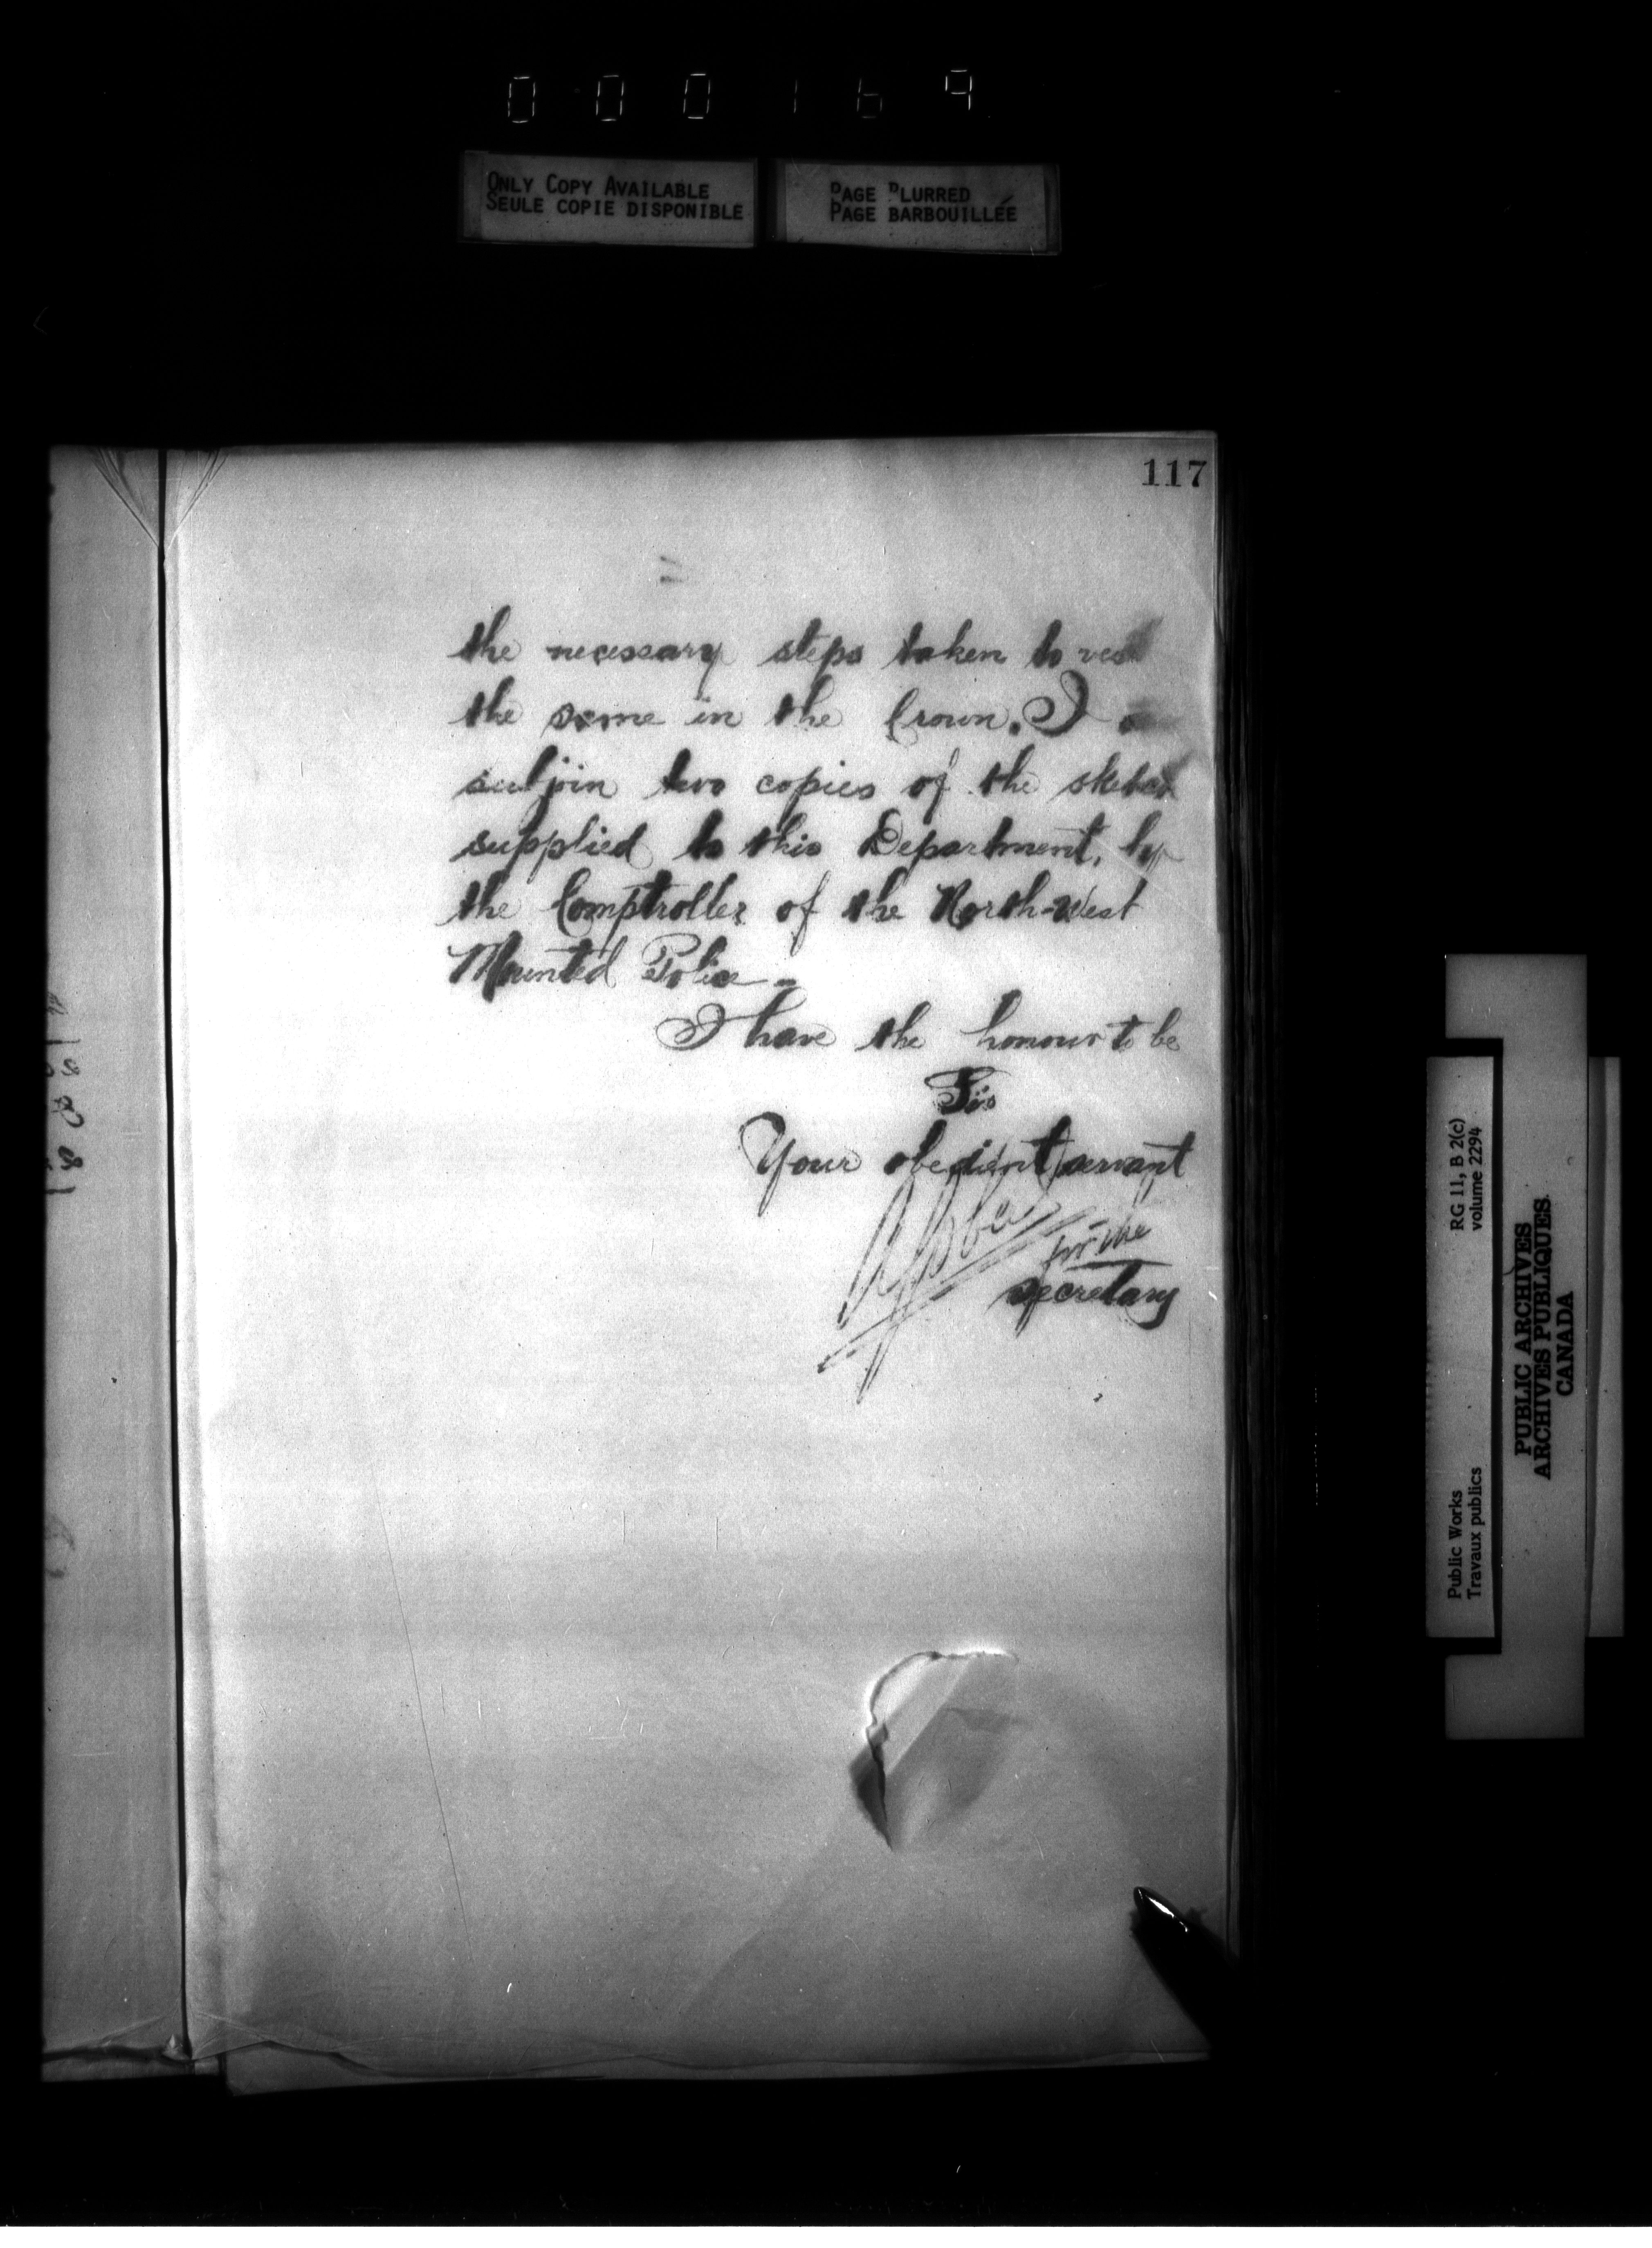 000169
ONLY COPY AVAILABLE
SEULE COPIE DISPONIBLE
PAGE BLURRED
PAGE BARBOUILLÉE
117
the necessary steps taken to vest
the same in the Crown. I
subjoin two copies of the sketch
supplied to this Department, by
the Comptroller of the North-West
Mounted Police -
I have the honour to be
Sir
Your obedient servant
for the
secretary
Public Works
Travaux publics
RG 11, B 2(c)
volume 2294
PUBLIC ARCHIVES
ARCHIVES PUBLIQUES
CANADA